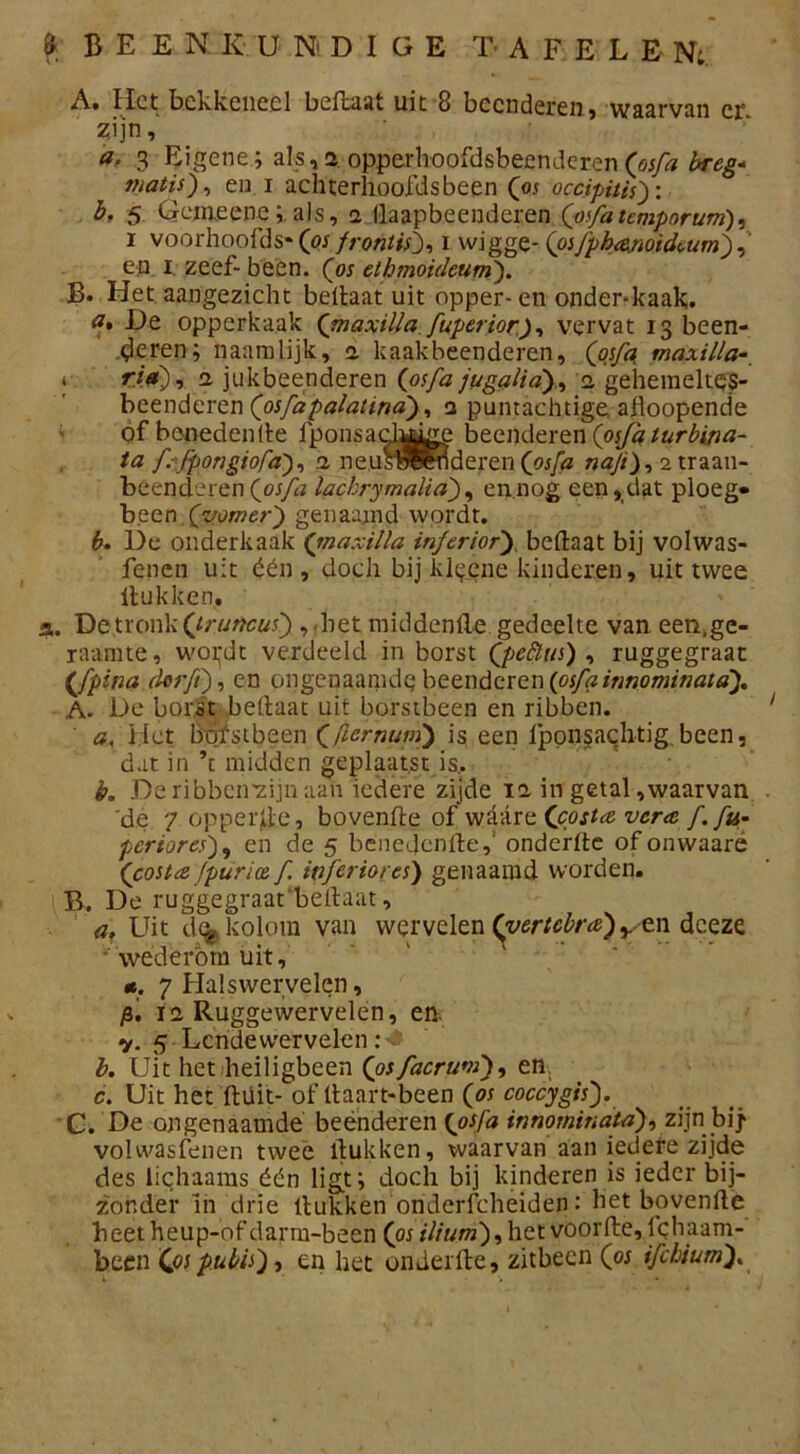 8 BEENKUNDIGE TAFELEN.
A. Het bekkeneel beſtaat uit 8 beenderen, waarvan er
zijn,
a. 3 Eigene; als, 2 opperhoofdsbeenderen (osſa breg-
matis), en 1 achterhoofdsbeen (os occipitis):
b. 5 Gemeene; als, 2 ſlaapbeenderen (osſa temporum),
1 voorhoofds- (os frontis), 1 wigge- (os ſphænoideum),
en 1 zeef-been. (os ethmoideum).
B. Het aangezicht beſtaat uit opper- en onder-kaak.
a. De opperkaak (maxilla ſuperior), vervat 13 been-
deren; naamlijk, 2 kaakbeenderen, (osſa maxilla-
ria), 2 jukbeenderen (osſa jugalia), 2 gehemeltes-
beenderen (osſa palatina), 2 puntachtige afloopende
of benedenſte ſponsachtige beenderen (osſa turbina-
ta ſ. ſpongioſa), 2 neusbeenderen (osſa naſi), 2 traan-
beenderen (osſa lachrymalia), en nog een, dat ploeg-
been (vomer) genaamd wordt.
b. De onderkaak (maxilla inferior) beſtaat bij volwas-
ſenen uit één, doch bij kleene kinderen, uit twee
ſtukken.
2. De tronk (truncus), het middenſte gedeelte van een ge-
raamte, wordt verdeeld in borst (pectus), ruggegraat
(ſpina dorſi), en ongenaamde beenderen (osſa innominata).
A. De borst beſtaat uit borstbeen en ribben.
a. Het borstbeen (ſternum) is een ſponsachtig been,
dat in 't midden geplaatst is.
b. De ribben zijn aan iedere zijde 12 in getal, waarvan
de 7 opperſte, bovenſte of wááre (costæ veræ ſ. ſu-
periores), en de 5 benedenſte, onderſte of onwaare
(costæ ſpuriæ ſ. inferiores) genaamd worden.
B. De ruggegraat beſtaat,
a. Uit de kolom van wervelen (vertebræ), en deeze
wederom uit,
α. 7 Halswervelen,
β. 12 Ruggewervelen, en
γ. 5 Lendewervelen:
b. Uit het heiligbeen (os ſacrum), en
c. Uit het ſtuit- of ſtaart-been (os coccygis).
C. De ongenaamde beenderen (osſa innominata), zijn bij
volwasſenen twee ſtukken, waarvan aan iedere zijde
des lichaams één ligt; doch bij kinderen is ieder bij-
zonder in drie ſtukken onderſcheiden: het bovenſte
heet heup- of darm-been (os ilium), het voorſte, ſchaam-
been (os pubis), en het onderſte, zitbeen (os iſchium).